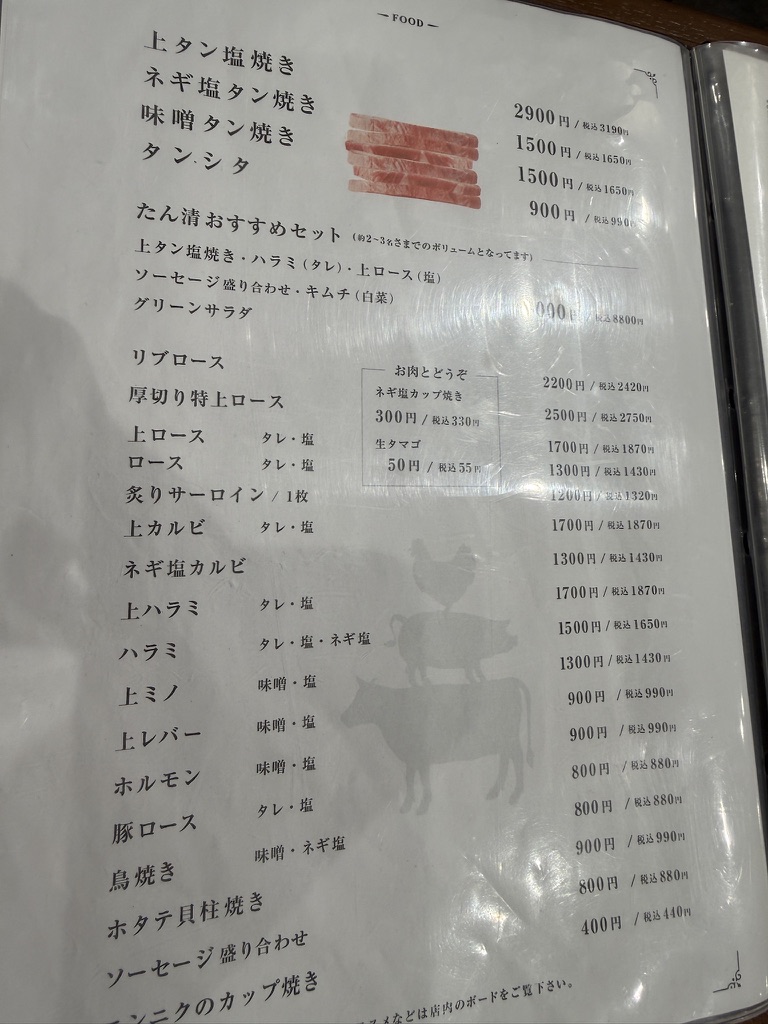 FOOD
上タン塩焼き 2900円 / 税込3190円
ネギ塩タン焼き 1500円 / 税込1650円
味噌タン焼き 1500円 / 税込1650円
タンシタ 900円 / 税込990円
たん清おすすめセット (約2~3名さまでのボリュームとなってます)
上タン塩焼き・ハラミ(タレ)・上ロース(塩)
ソーセージ盛り合わせ・キムチ(白菜)
グリーンサラダ 税込8800円
リブロース 2200円 / 税込2420円
厚切り特上ロース 2500円 / 税込2750円
上ロース タレ・塩 1700円 / 税込1870円
ロース タレ・塩 1300円 / 税込1430円
炙りサーロイン / 1枚 1200円 / 税込1320円
上カルビ タレ・塩 1700円 / 税込1870円
ネギ塩カルビ 1300円 / 税込1430円
上ハラミ タレ・塩 1700円 / 税込1870円
ハラミ タレ・塩・ネギ塩 1500円 / 税込1650円
上ミノ 味噌・塩 1300円 / 税込1430円
上レバー 味噌・塩 900円 / 税込990円
ホルモン 味噌・塩 900円 / 税込990円
豚ロース タレ・塩 800円 / 税込880円
鳥焼き 味噌・ネギ塩 800円 / 税込880円
ホタテ貝柱焼き 900円 / 税込990円
ソーセージ盛り合わせ 800円 / 税込880円
ンニクのカップ焼き 400円 / 税込440円
お肉とどうぞ
ネギ塩カップ焼き
300円 / 税込330円
生タマゴ
50円 / 税込55円
スメなどは店内のボードをご覧下さい。